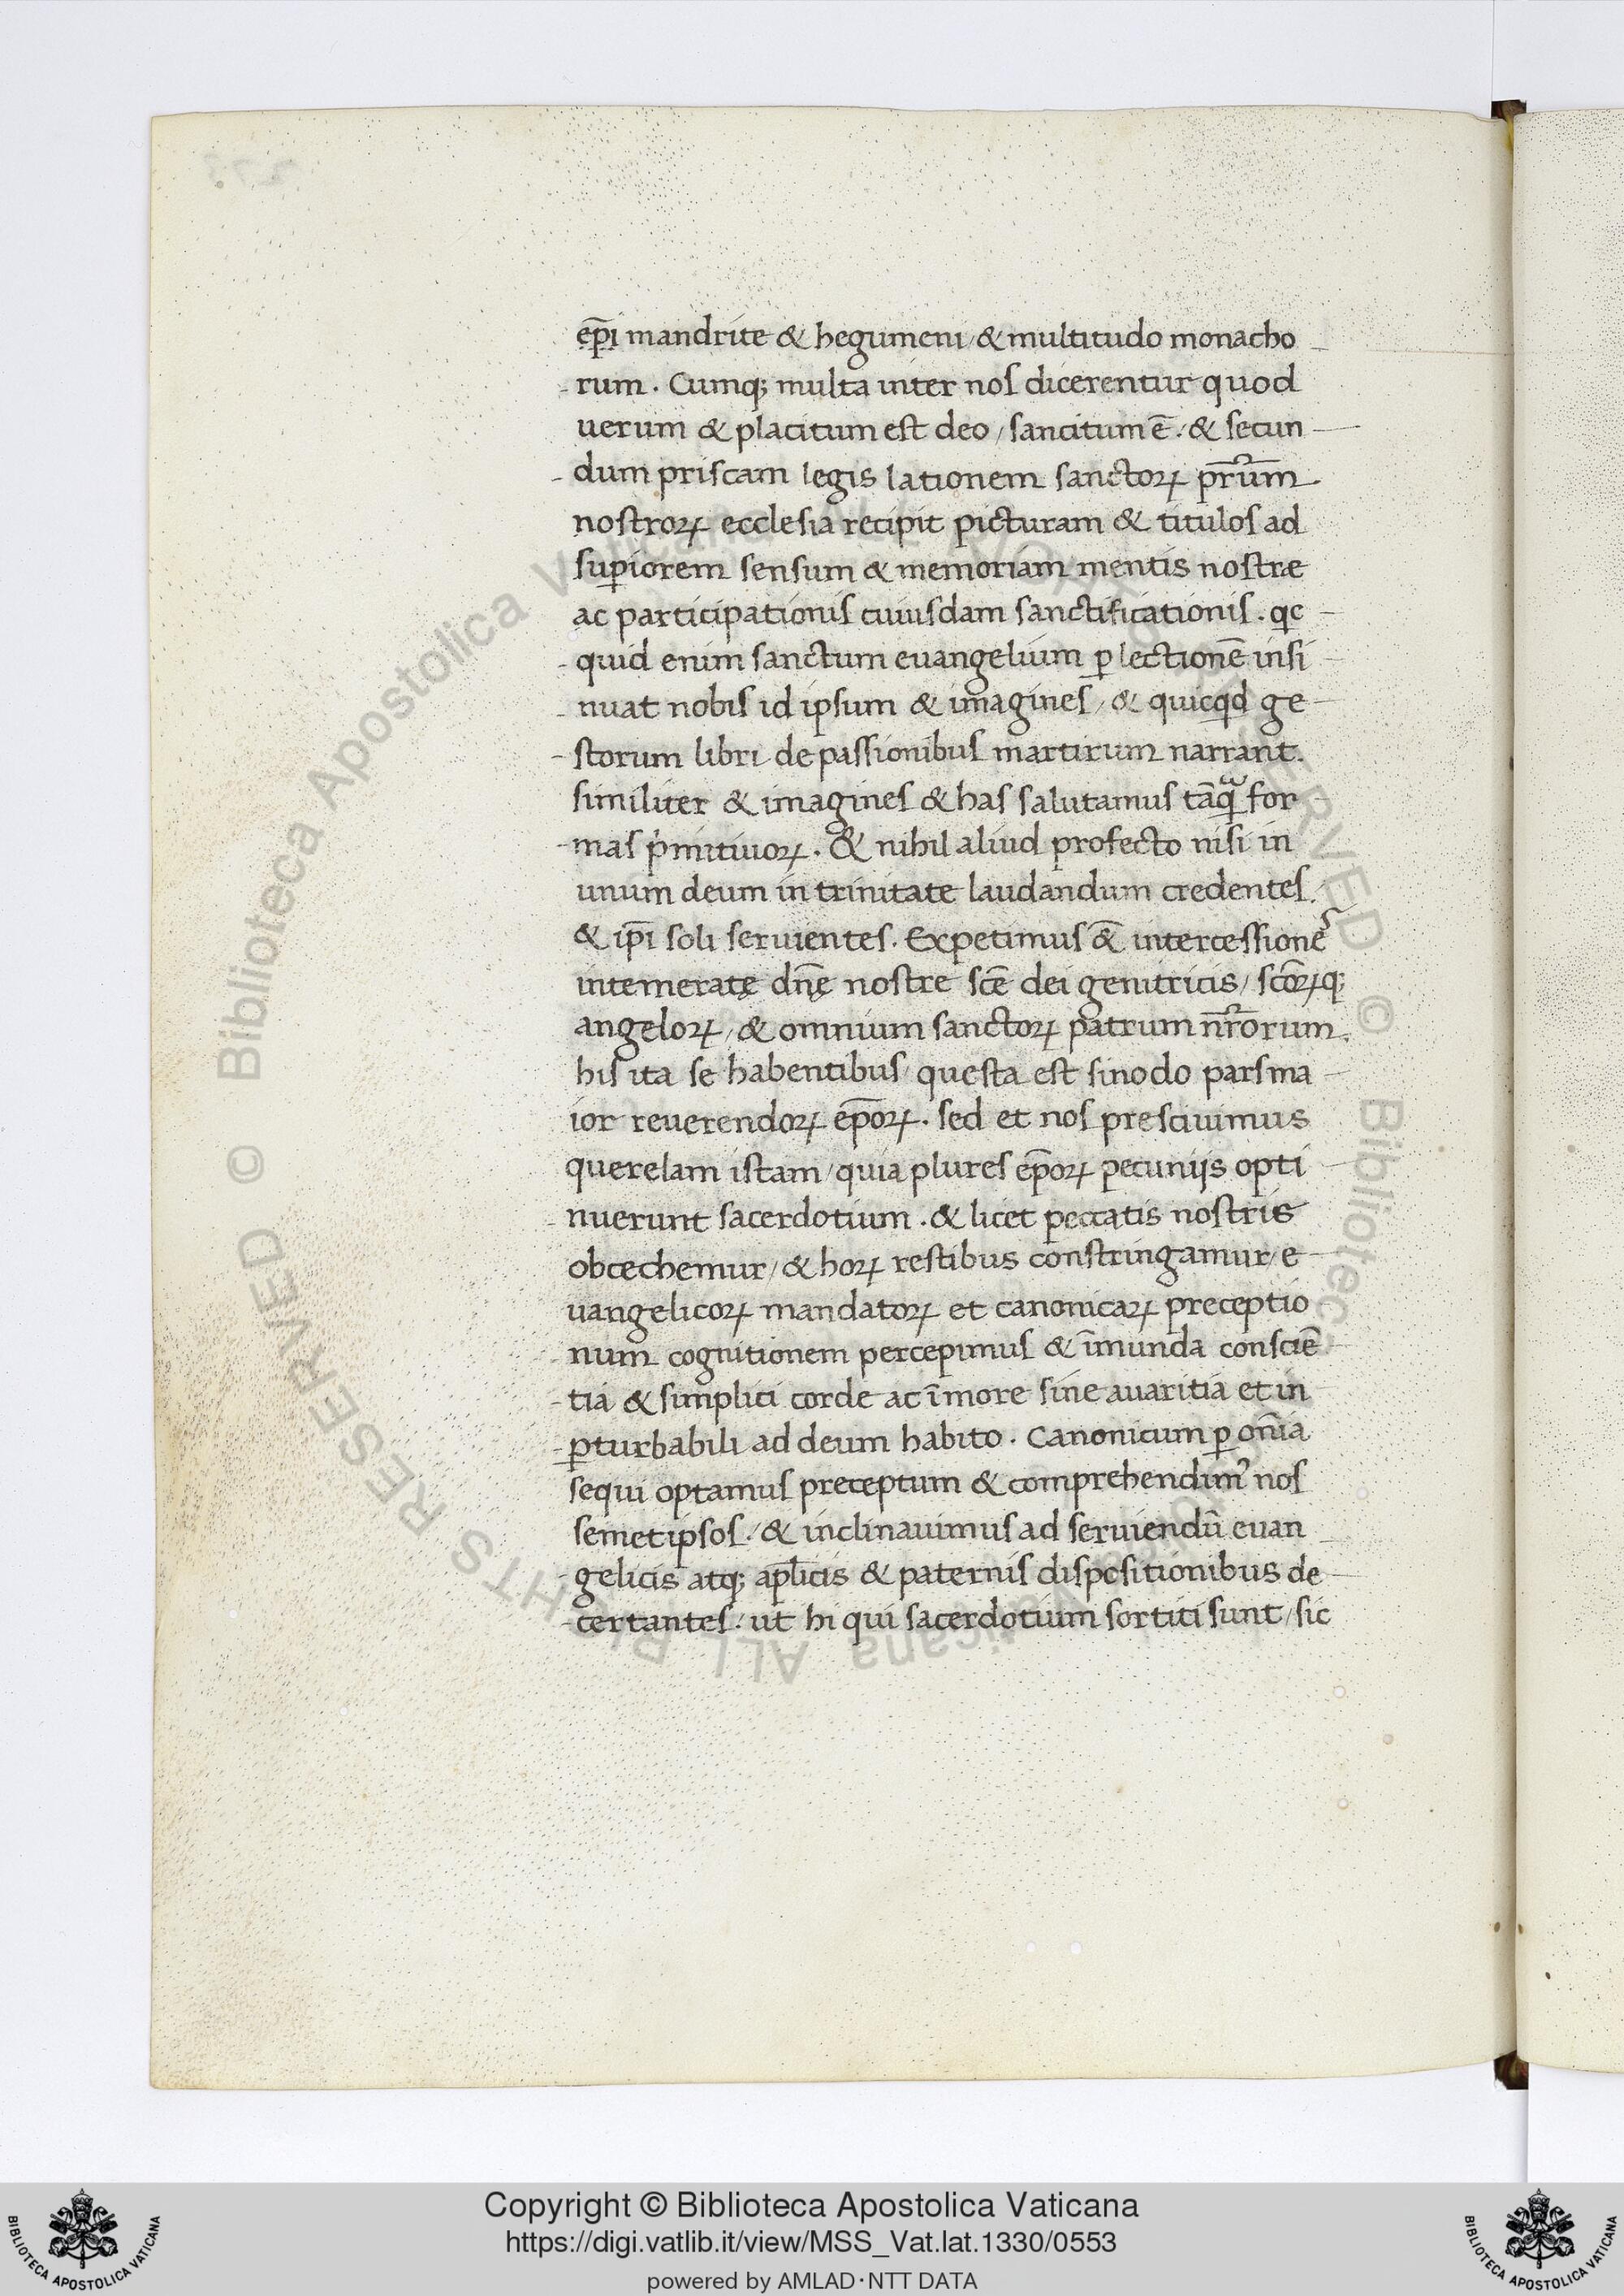 ep̄i mandrite & hegumeni / & multitudo monacho
rum . Cumq; multa inter nos dicerentur quod
uerum & placitum est deo / sancitum ē . & secun
dum priscam legis lationem sanctoꝝ pr̄um
nostroꝝ ecclesia recipit picturam & titulos ad
suꝑiorem sensum & memoriam mentis nostræ
ac participationis cuiusdam sanctificationis . qc
quid enim sanctum euangelium ꝑ lectionē insi
nuat nobis id ipsum & imagines / & quicqd ge
storum libri de passionibus martirum narrant .
similiter & imagines & has salutamus tāqᷓ for
mas pͥmitiuoꝝ . & nihil aliud profecto nisi in
unum deum in trinitate laudandum credentes .
& ip̄i soli seruientes . Expetimus &̄ intercessiones
intemeratę dn̄ę nostre scē dei genitricis / scōꝝq;
angeloꝝ / & omnium sanctoꝝ patrum nr̄orum .
his ita se habentibus / questa est sinodo pars ma
ior reuerendoꝝ ep̄oꝝ . sed et nos presciuimus
querelam istam / quia plures ep̄oꝝ pecuniis opti
nuerunt sacerdotium . & licet peccatis nostris
obcechemur / & hoꝝ restibus constringamur / e
uangelicoꝝ mandatoꝝ et canonicaꝝ preceptio
num cognitionem percepimus & īmunda consciē
tia & simplici corde ac īmore sine auaritia et in
ꝑturbabili ad deum habito . Canonicum ꝑ om̄ia
sequi optamus preceptum & comprehendimꝰ nos
semetipsos . / & inclinauimus ad seruiendū euan
gelicis atq; apl̄icis & paternis dispositionibus de
certantes . ut hi qui sacerdotium sortiti sunt / sic
© Biblioteca Apostolica Vaticana ALL RIGHTS RESERVED
Copyright © Biblioteca Apostolica Vaticana
https://digi.vatlib.it/view/MSS_Vat.lat.1330/0553
powered by AMLAD·NTT DATA
BIBLIOTECA APOSTOLICA VATICANA
BIBLIOTECA APOSTOLICA VATICANA